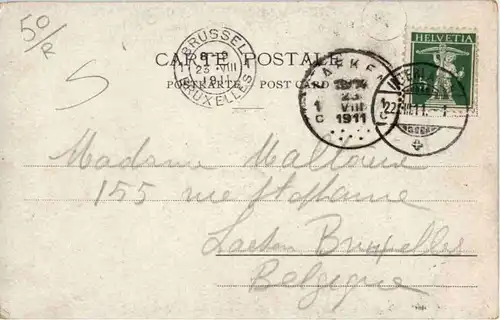 50/R
BRUSSEL
8-9
23 VIII
BRUXELLES
HELVETIA
LAEKEN
23
VIII
1911
1 C
1 C
22.VIII.11.
CARTE POSTALE
POSTKARTE POST CARD
Madame Mallouie
155 rue Stéphanie
Laeken Bruxelles
Belgique